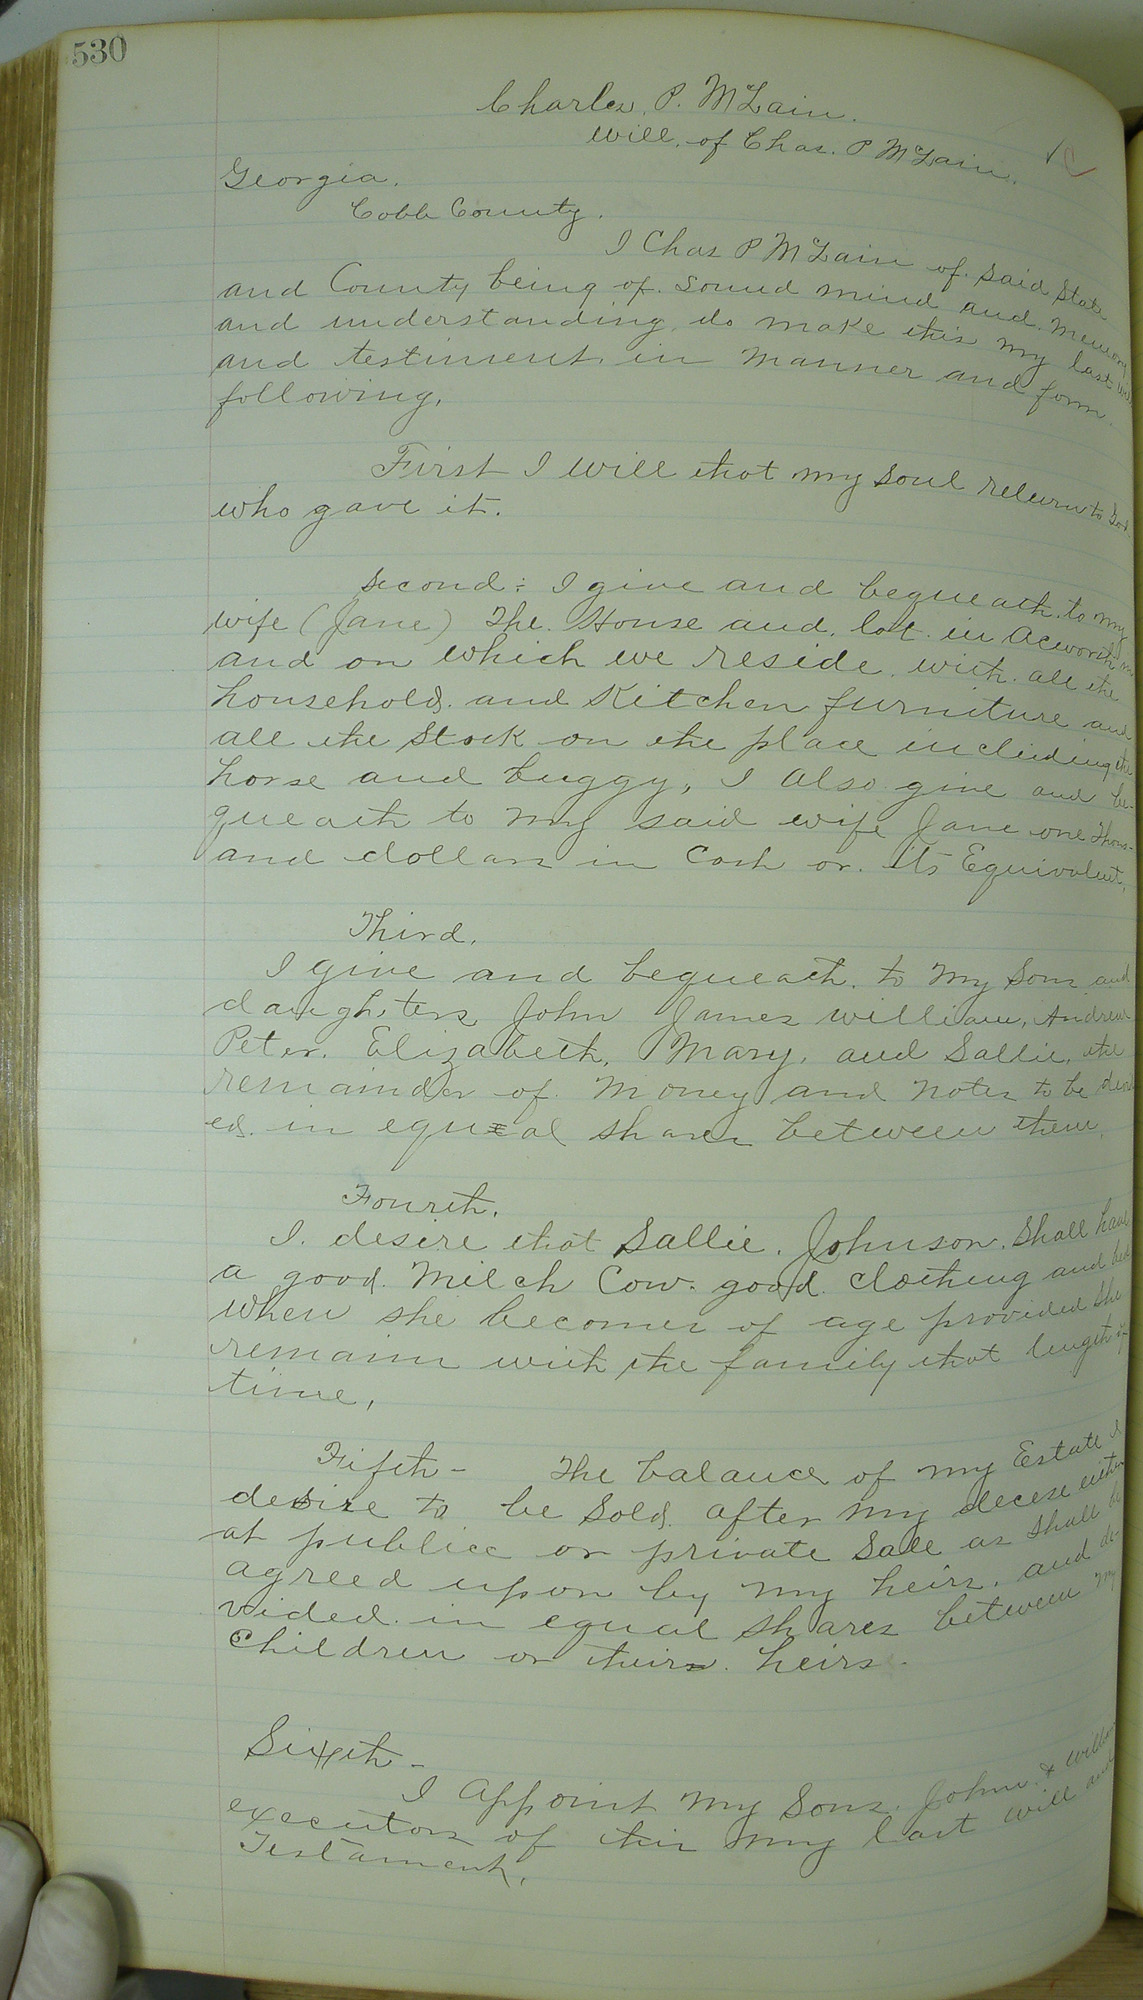 530
Charles. P. McLain.
Will. of Chas. P McLain.
Georgia.
Cobb County.
I Chas P McLain of. Said State
and County being of. Sound mind and. Memory
and understanding. do make this my last will
and testiment. in Manner and form.
following,
First I will that my Soul return to God
who gave it.
Second: I give and bequeath. to my
wife (Jane) The. House and. lot. in Acworth
and on which we reside. with. all the
household. and Kitchen furniture and
all the Stock on the place including the
horse and buggy, I Also give and be-
queath to my said wife Jane one Thous-
and dollars in Cash or. its Equivalent,
Third.
I give and bequeath. to My Sons and
daughters John James William, Andrew
Peter. Elizabeth, Mary, and Sallie. the
remainder of. Money and Notes to be divid
ed. in equal Shares between them.
Fourth.
I. desire that Sallie. Johnson. Shall have
a good. Milch Cow. good. Clothing and bed
when she becomes of age provided She
remains with the family that length of
time,
Fifth- The balance of my Estate I
desire to be Sold. after my decese either
at publice or private Sale as Shall be
agreed upon by my heirs. and de-
vided. in equal Shares between my
Children or their. heirs.
Sixth-
I Appoint My Sons. John & William
executors of this my last will and
Testament,